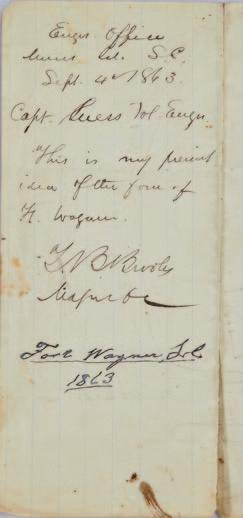 Engr. Office
Morris Id. S.C.
Sept. 4th 1863.
Capt. Suess Vol. Engr.
This is my present
idea of the form of
Ft. Wagner.
T. B. Brooks
Maj
Fort Wagner,
1863